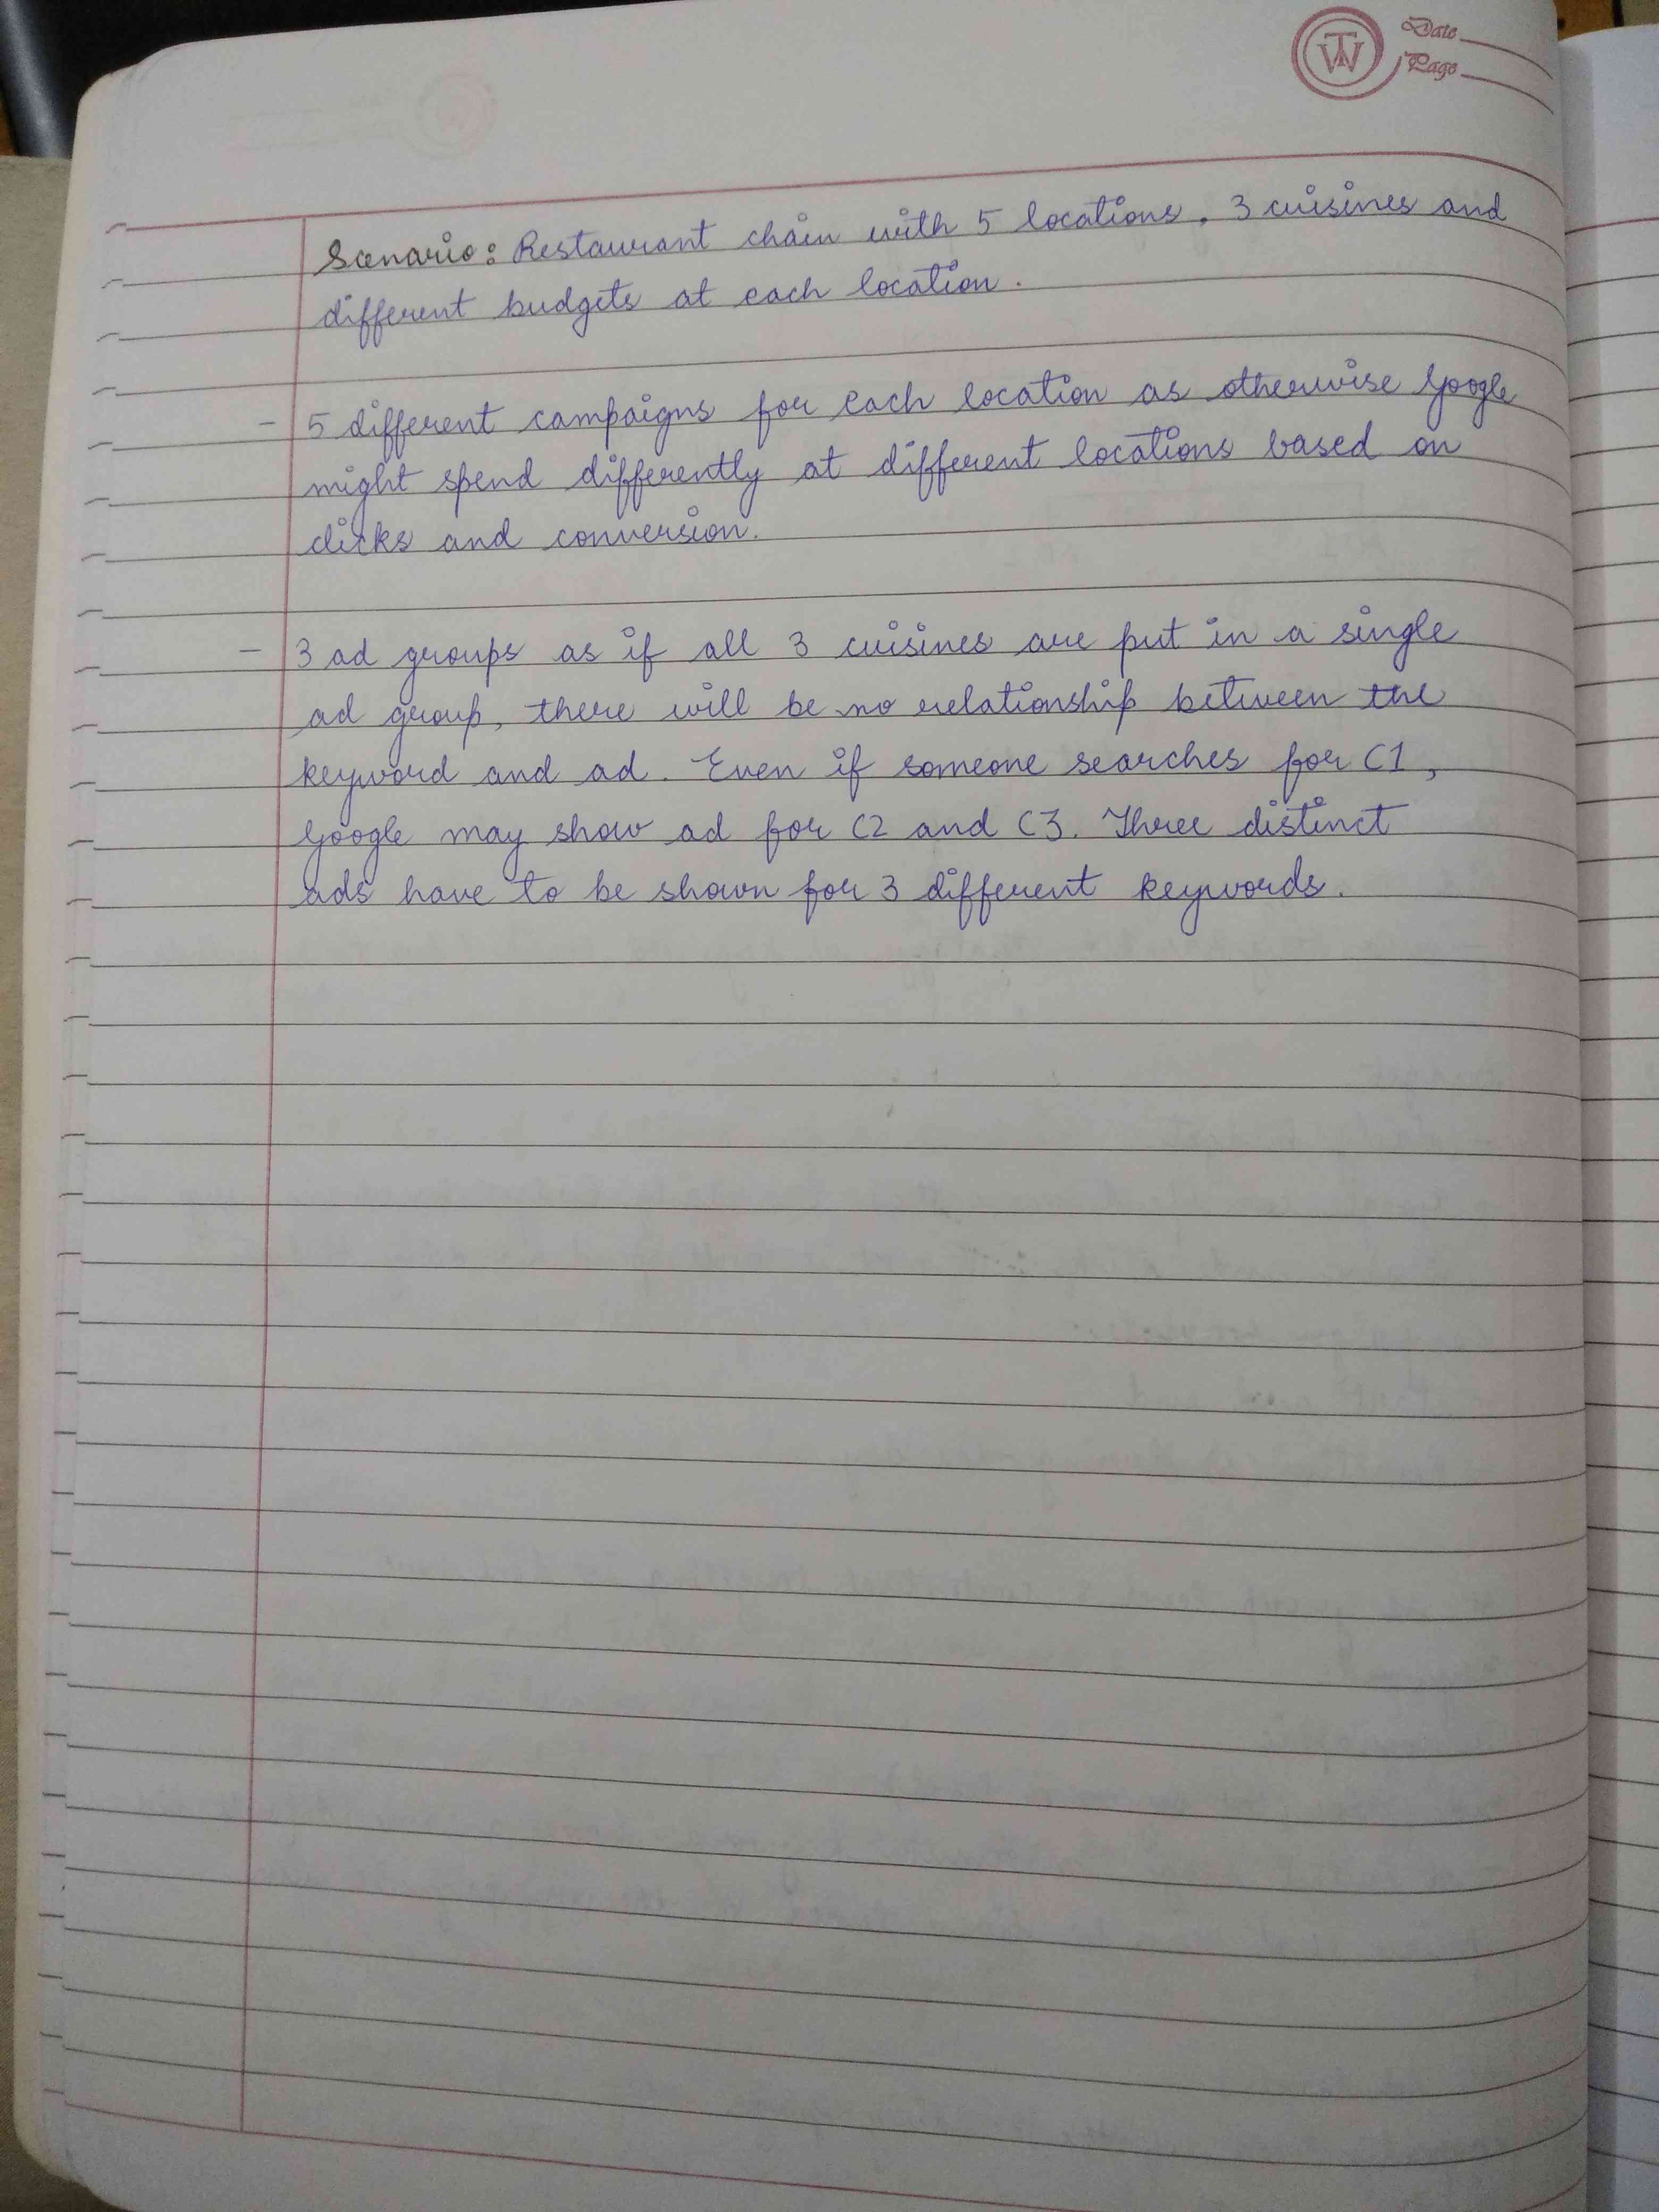 TW
Date
Page
Scenario: Restaurant chain with 5 locations, 3 cuisines and
different budgets at each location.
- 5 different campaigns for each location as otherwise Google
might spend differently at different locations based on
clicks and conversion.
- 3 ad groups as if all 3 cuisines are put in a single
ad group, there will be no relationship between the
keyword and ad. Even if someone searches for C1,
Google may show ad for C2 and C3. Three distinct
ads have to be shown for 3 different keywords.